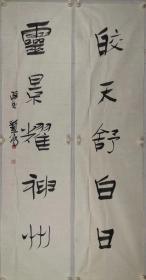 皎天舒白日
靈景耀神州